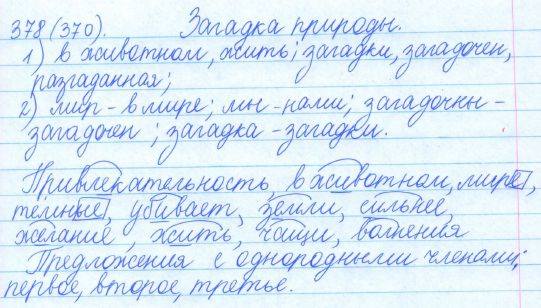 378(370). Загадка природы.
1) в животном, жить; загадки, загадочен,
разгаданная;
2) мир - в мире; мы - нами; загадочны -
загадочен ; загадка - загадки.
Привлекательность, в животном, мире,
темные, убивает, земли, сильнее,
желание, жить, чащи, волнения
Предложения с однородными членами:
первое, второе, третье.